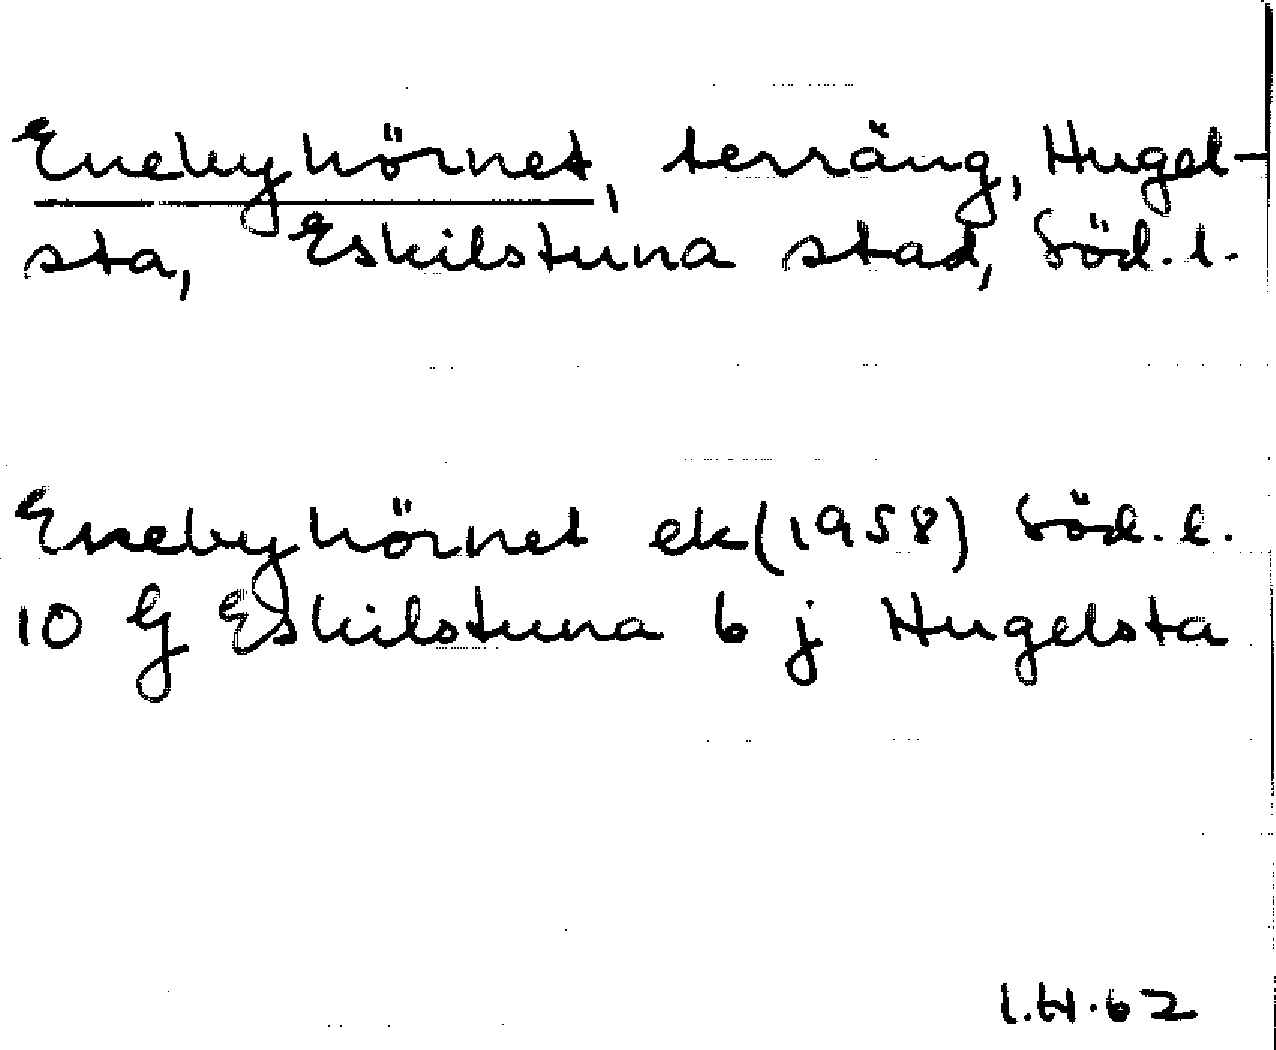 Enebyhörnet, terräng, Hugel-
sta, Eskilstuna stad, Söd. l.
Enebyhörnet ek (1958) Söd. l.
10 G Eskilstuna 6 j Hugelsta
I.H. 62